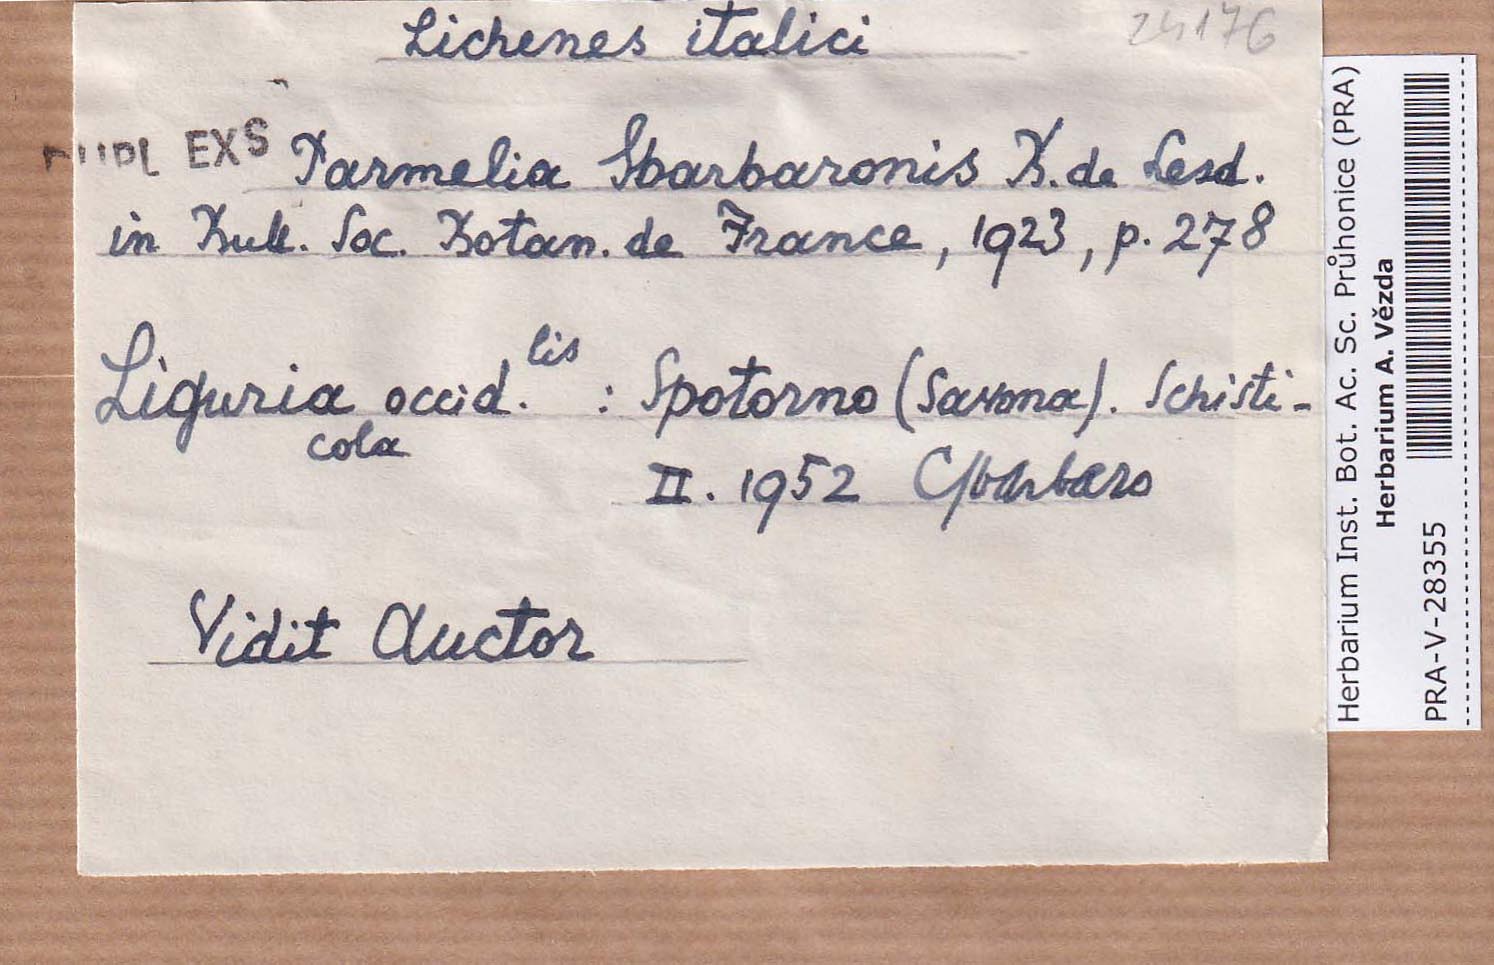 Lichenes italici
24176
DUPL EXS
Parmelia Sbarbaronis B. de Lesd.
in Bull. Soc. Botan. de France, 1923, p. 278
Liguria occid.lis : Spotorno (Savona). Schisti-
cola
II. 1952 C Sbarbaro
Vidit Auctor
Herbarium Inst. Bot. Ac. Sc. Průhonice (PRA)
Herbarium A. Vězda
PRA-V-28355